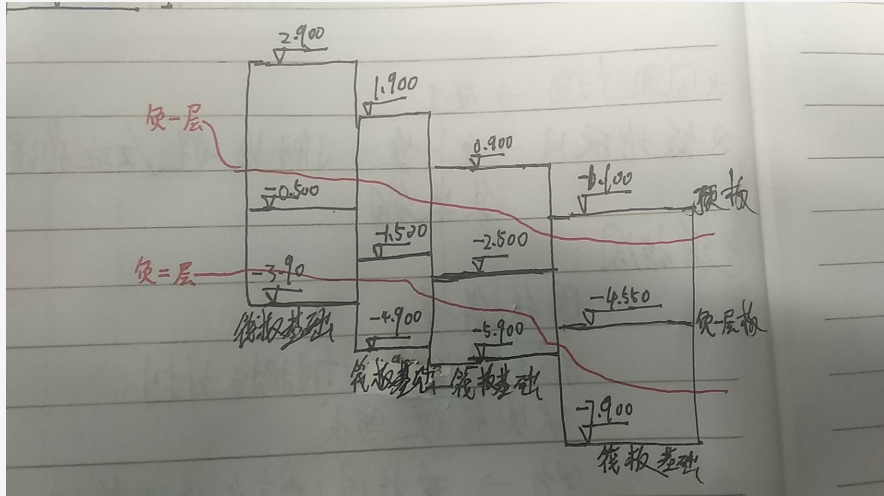 2.900
1.900
负一层
0.900
-0.500
顶板
-1.500
-2.500
负二层
-3.90
-4.550
负一层板
-4.900
-5.900
筏板基础
筏板基础
筏板基础
-7.900
筏板基础